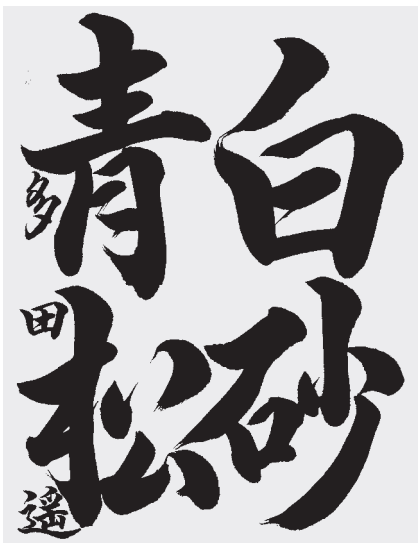 白砂
青松
多田遥